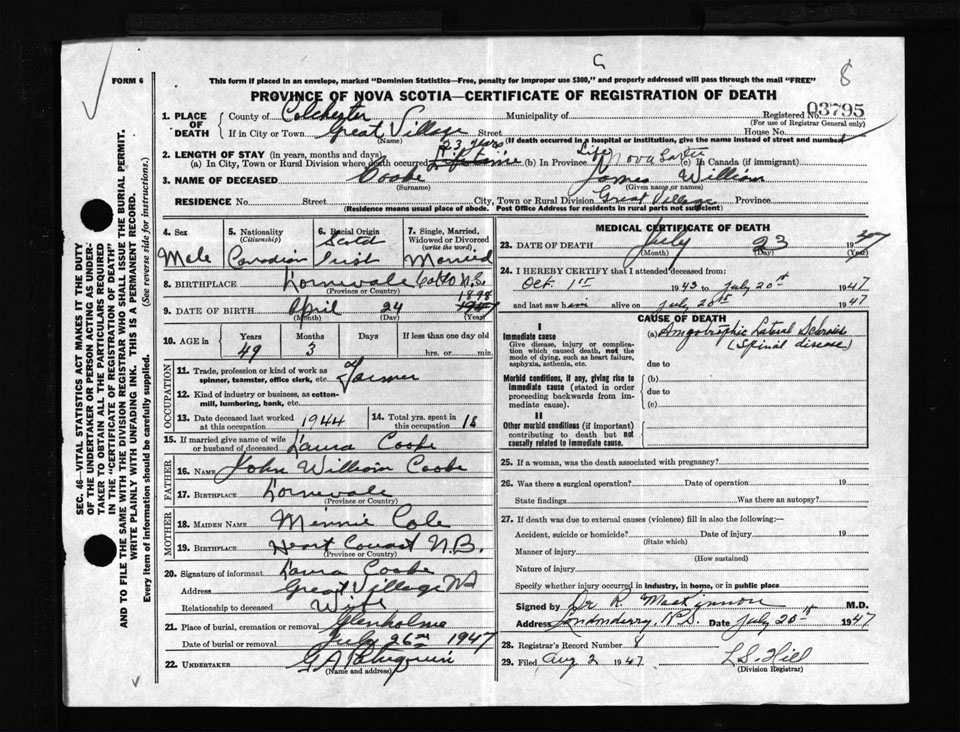 G
8
FORM 6
This form if placed in an envelope, marked "Dominion Statistics—Free, penalty for improper use $300," and properly addressed will pass through the mail "FREE"
PROVINCE OF NOVA SCOTIA—CERTIFICATE OF REGISTRATION OF DEATH
03795
1. PLACE OF DEATH
County of Colchester Municipality of Registered No.
(For use of Registrar General only)
If in City or Town Great Village Street House No.
(Name) (If death occurred in a hospital or institution, give the name instead of street and number)
23 years
2. LENGTH OF STAY (in years, months and days)
(a) In City, Town or Rural Division where death occurred Lifetime (b) In Province Life Nova Scotia (c) In Canada (if immigrant)
3. NAME OF DECEASED Cooke James William
(Surname) (Given name or names)
RESIDENCE No. Street City, Town or Rural Division Great Village Province
(Residence means usual place of abode. Post Office Address for residents in rural parts not sufficient)
4. Sex Male
5. Nationality (Citizenship) Canadian
6. Racial Origin Scotch Irish
7. Single, Married, Widowed or Divorced (write the word) Married
8. BIRTHPLACE Lornevale Col Co N.S.
(Province or Country)
1898
9. DATE OF BIRTH April 24 1947
(Month) (Day) (Year)
10. AGE in Years Months If less than one day old
49 3 hrs. or min.
OCCUPATION
11. Trade, profession or kind of work as spinner, teamster, office clerk, etc. Farmer
12. Kind of industry or business, as cotton-mill, lumbering, bank, etc.
13. Date deceased last worked at this occupation 1944
14. Total yrs. spent in this occupation 18
15. If married give name of wife or husband of deceased Laura Cooke
FATHER
16. NAME John William Cooke
17. BIRTHPLACE Lornevale
(Province or Country)
MOTHER
18. MAIDEN NAME Minnie Cole
19. BIRTHPLACE N.B.
(Province or Country)
20. Signature of informant Laura Cooke
Address Great Village NS
Relationship to deceased Wife
21. Place of burial, cremation or removal Glenholme
Date of burial or removal July 26 1947
22. UNDERTAKER G A Patriquin
(Name and address)
MEDICAL CERTIFICATE OF DEATH
23. DATE OF DEATH July 23 19
(Month) (Day) (Year)
24. I HEREBY CERTIFY that I attended deceased from:
Oct. 1st 1943 to July 20st 1947
and last saw him alive on July 20st 1947
CAUSE OF DEATH
I
Immediate cause
Give disease, injury or complication which caused death, not the mode of dying, such as heart failure, asphyxia, asthenia, etc.
(a) Amyotrophic Lateral Sclerosis
(Spinal disease)
due to
Morbid conditions, if any, giving rise to immediate cause (stated in order proceeding backwards from immediate cause).
(b)
due to
(c)
II
Other morbid conditions (if important) contributing to death but not causally related to immediate cause.
25. If a woman, was the death associated with pregnancy?
26. Was there a surgical operation? Date of operation 19
State findings Was there an autopsy?
27. If death was due to external causes (violence) fill in also the following:—
Accident, suicide or homicide? Date of injury 19
(State which)
Manner of injury
(How sustained)
Nature of injury
Specify whether injury occurred in industry, in home, or in public place
Signed by Dr R. MacKinnon M.D.
Address Londonderry, N.S. Date July 20th 1947
28. Registrar's Record Number 8
29. Filed Aug 2 1947 L S. Hill
(Division Registrar)
SEC. 46—VITAL STATISTICS ACT MAKES IT THE DUTY
OF THE UNDERTAKER OR PERSON ACTING AS UNDER-
TAKER TO OBTAIN ALL THE PARTICULARS REQUIRED
IN THE "CERTIFICATE OF REGISTRATION OF DEATH"
AND TO FILE THE SAME WITH THE DIVISION REGISTRAR WHO SHALL ISSUE THE BURIAL PERMIT.
WRITE PLAINLY WITH UNFADING INK. THIS IS A PERMANENT RECORD.
Every item of information should be carefully supplied. (See reverse side for instructions.)